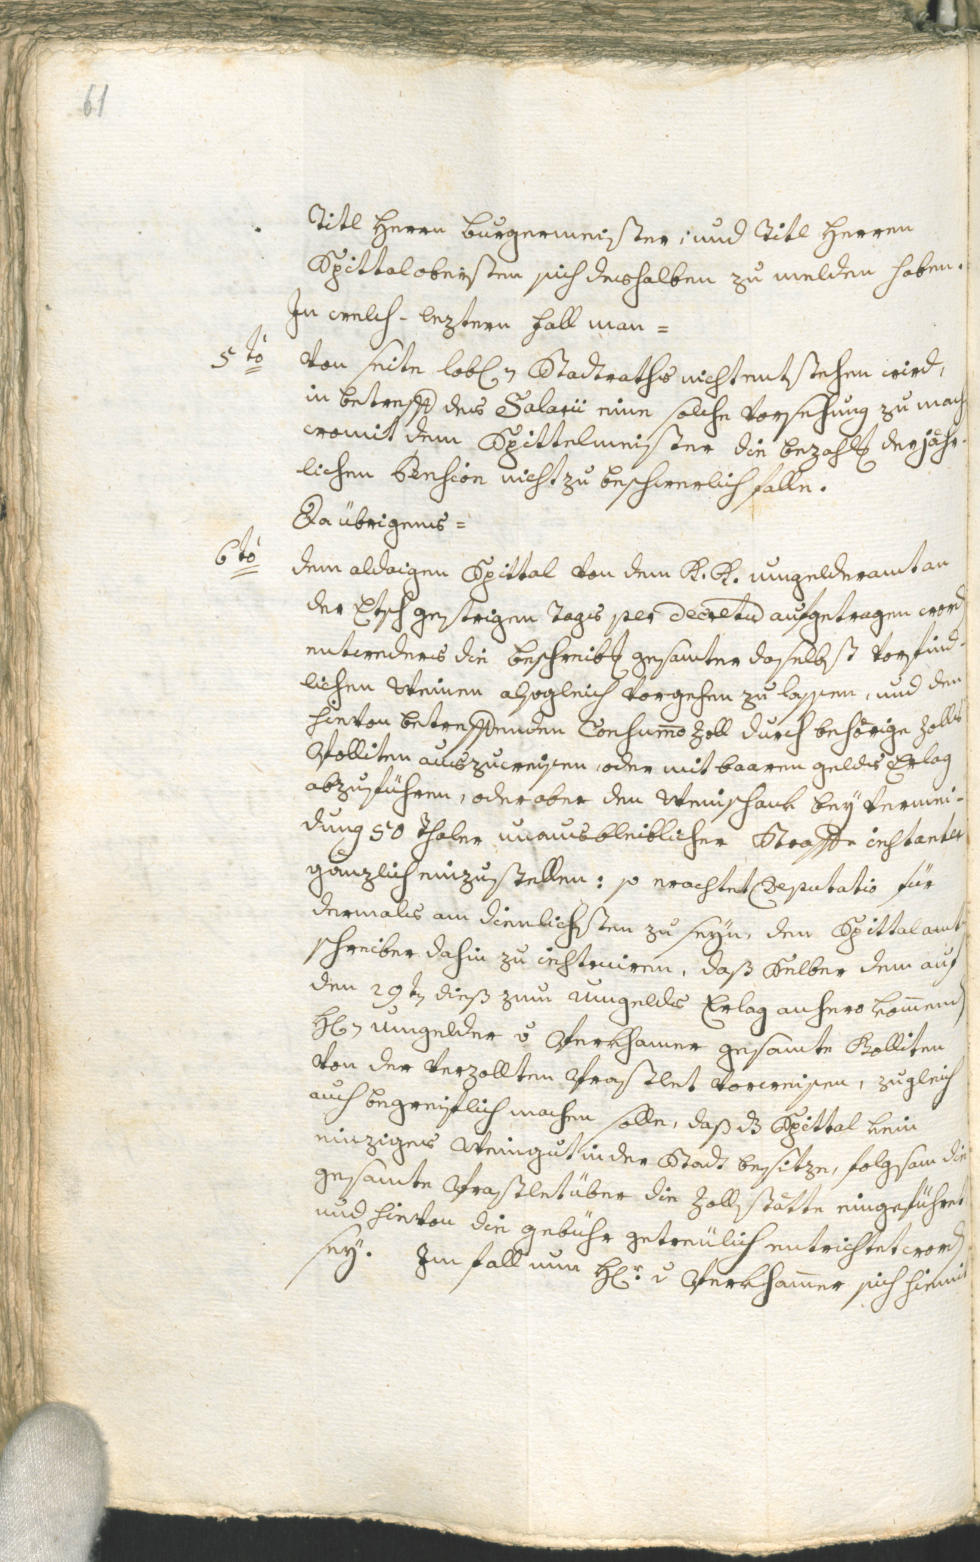 61
Titl Herrn Burgermeister, und Titl Herren
Spittalobersten sich deshalben zu melden haben.
In welch-leztern Fall man =
5to von seite lobl: Stadtraths nicht entstehen wird,
in betreff des Salarii eine solche Vorsehung zu mach
womit dem Spittelmeister die bezahlg der jähr-
lichen Pension nicht zu beschwerlich falle.
Da übrigens =
6to dem aldaigen Spittal von dem K. K. umgelderamt an
der Etsch gestrigen Tags per Decretu aufgetragen word
entweders die beschreibg gesamter daselbst vorfind-
lichen Weinen alsogleich vorgehen zu lassen, und den
hievon betreffenden Consumo Zoll durch behörige Zolls
Polliten auszuweisen, oder mit baaren gelds Erlag
abzuführen, oder aber den Weinschank bey vermei-
dung 50 Thaler unausbleiblicher Straffe instanter
gänzlich einzustellen: so erachtet Deputatio für
dermals am dienlichsten zu seyn, den Spittalamt
schreiber dahin zu instruiren, daß Selber dem auf
den 29t dieß zum Umgelds Erlag anhero komend
Hl: Umgelder v Perkhamer gesamte Polliten
von der verzollten Praschlet vorweisen, zugleich
auch begreiflich machen solle, daß dz Spittal kein
einziges Weingut in der Stadt besitze, folgsam die
gesamte Praschlet über die Zollstätte eingeführet
und hievon die gebühr getreulich entrichtet word
sey. Im fall nun Hr: v Perkhamer sich hiemit